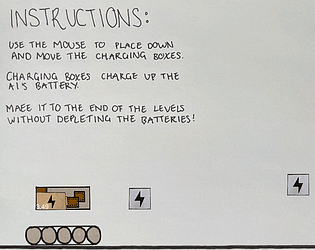 INSTRUCTIONS:
USE THE MOUSE TO PLACE DOWN
AND MOVE THE CHARGING BOXES.
CHARGING BOXES CHARGE UP THE
AI'S BATTERY.
MAKE IT TO THE END OF THE LEVELS
WITHOUT DEPLETING THE BATTERIES!